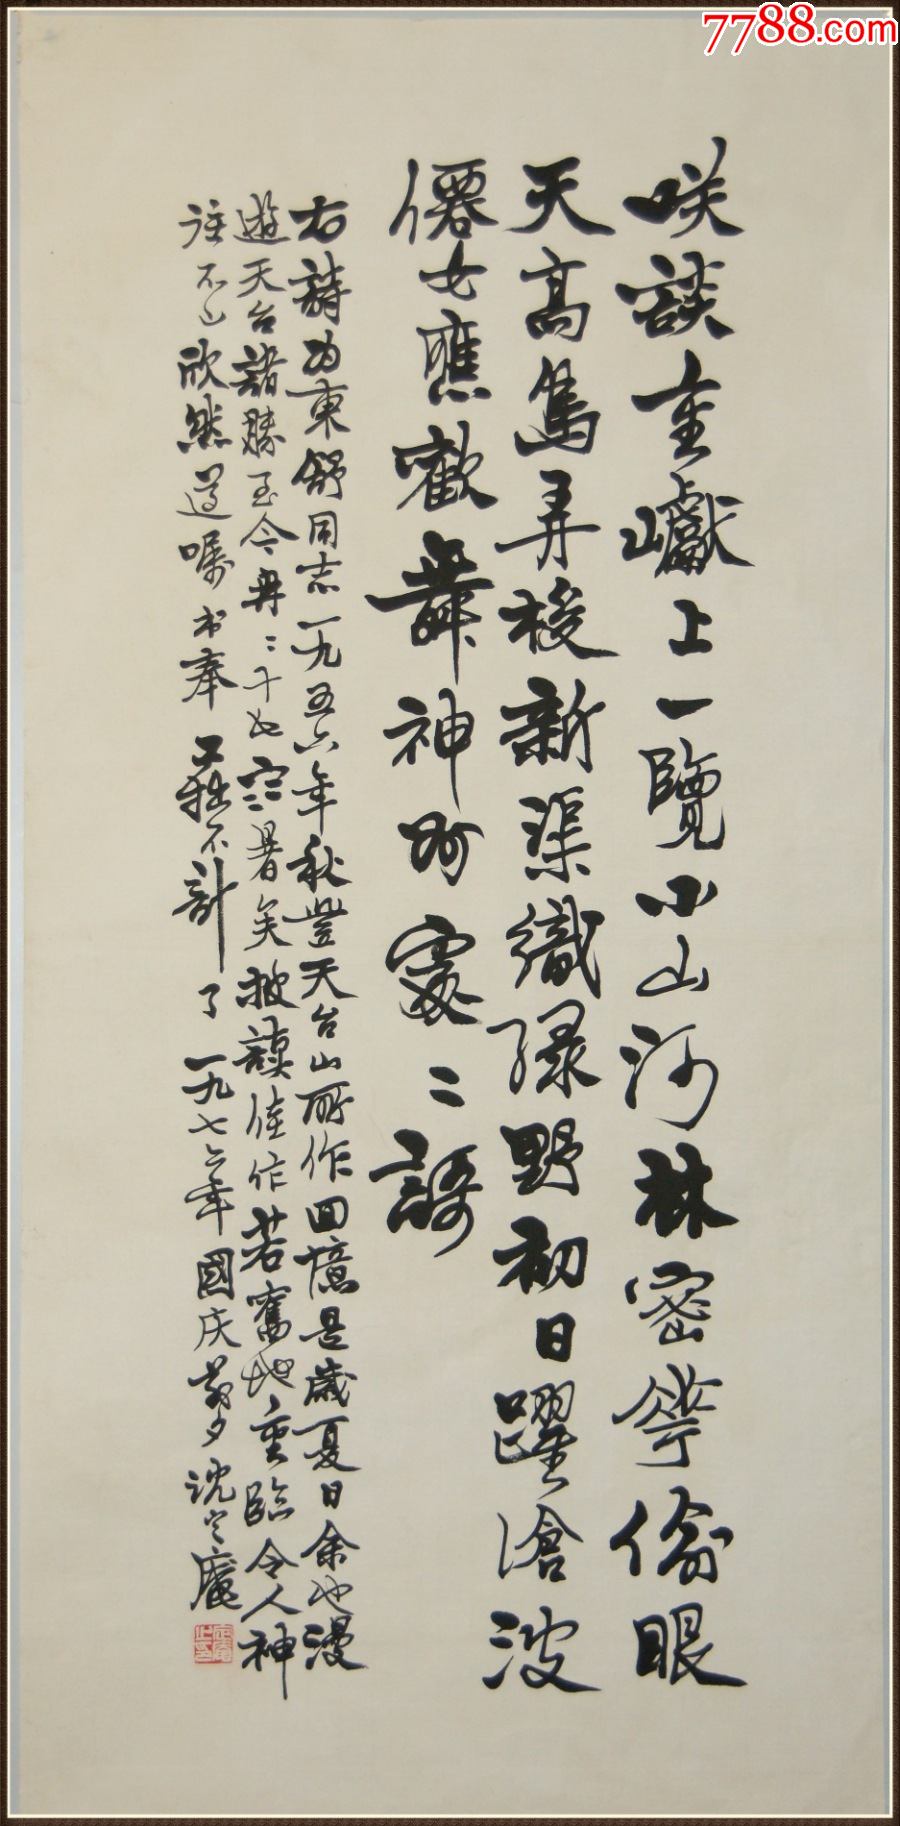 7788.com
咲談重巘上一覽小山河林密花偷眼
天高鳥弄梭新渠織綠野初日躍滄波
僊女應歡舞神州處〻謌
右詩为東舒同志一九五六年秋登天台山所作回憶是歲夏日余也漫
遊天台諸勝至今冉〻二十也寒暑矣披讀佳作若舊地重臨令人神
往不已欣然遵囑书奉 工拙不計了一九七六年國庆前夕沈定庵